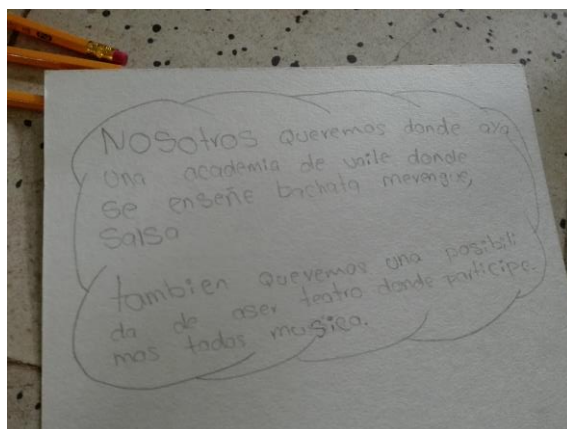 NOSotros queremos donde aya
una academia de vaile donde
se enseñe bachata merengue,
Salsa
tambien queremos una posibili
da de aser teatro donde participe-
mos todos musica.